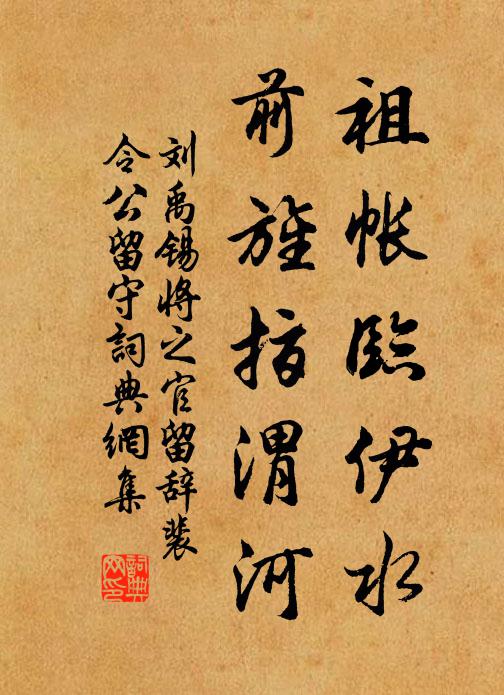 祖帐臨伊水
前旌指渭河
刘禹锡将之官留辞裴
令公留守詞典網集
詞典
网印